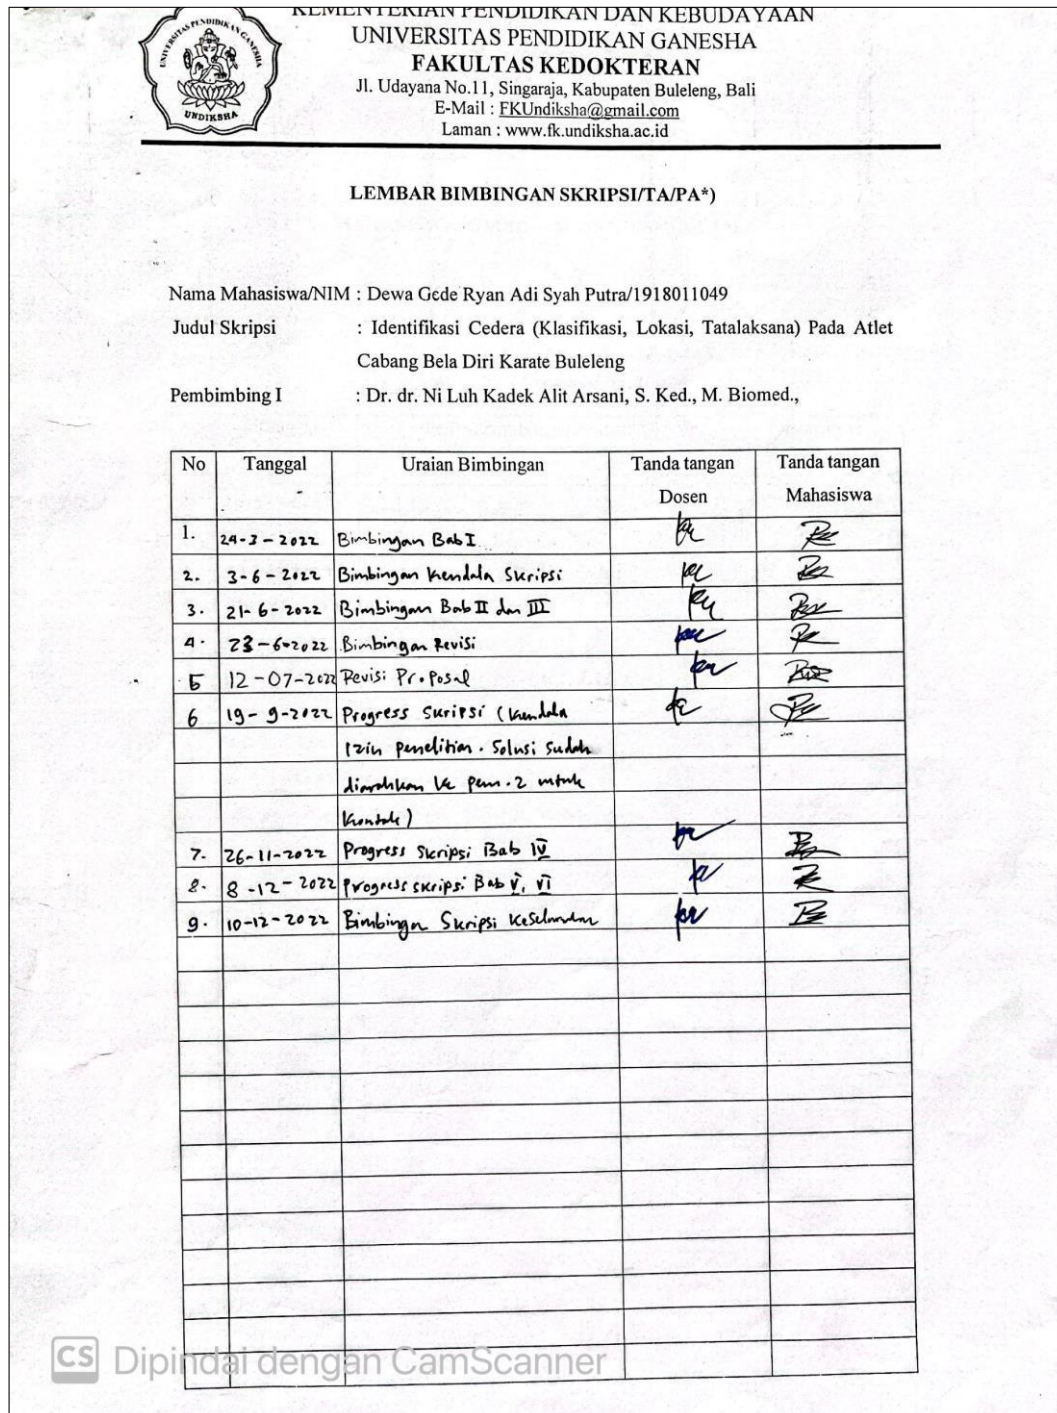 KEMENTERIAN PENDIDIKAN DAN KEBUDAYAAN
UNIVERSITAS PENDIDIKAN GANESHA
FAKULTAS KEDOKTERAN
Jl. Udayana No.11, Singaraja, Kabupaten Buleleng, Bali
E-Mail : FKUndiksha@gmail.com
Laman : www.fk.undiksha.ac.id
UNIVERSITAS PENDIDIKAN GANESHA
UNDIKSHA
LEMBAR BIMBINGAN SKRIPSI/TA/PA*)
Nama Mahasiswa/NIM : Dewa Gede Ryan Adi Syah Putra/1918011049
Judul Skripsi : Identifikasi Cedera (Klasifikasi, Lokasi, Tatalaksana) Pada Atlet
Cabang Bela Diri Karate Buleleng
Pembimbing I : Dr. dr. Ni Luh Kadek Alit Arsani, S. Ked., M. Biomed.,
No Tanggal Uraian Bimbingan Tanda tangan Dosen Tanda tangan Mahasiswa
1. 24-3-2022 Bimbingan Bab I
2. 3-6-2022 Bimbingan Kendala Skripsi
3. 21-6-2022 Bimbingan Bab II dan III
4. 23-6-2022 Bimbingan Revisi
5 12-07-2022 Revisi Proposal
6 19-9-2022 Progress Skripsi (Kendala
izin penelitian. Solusi sudah
diarahkan ke pem. 2 untuk
kontak)
7. 26-11-2022 Progress Skripsi Bab IV
8. 8-12-2022 Progress skripsi Bab V, VI
9. 10-12-2022 Bimbingan Skripsi Keseluruhan
CS Dipindai dengan CamScanner